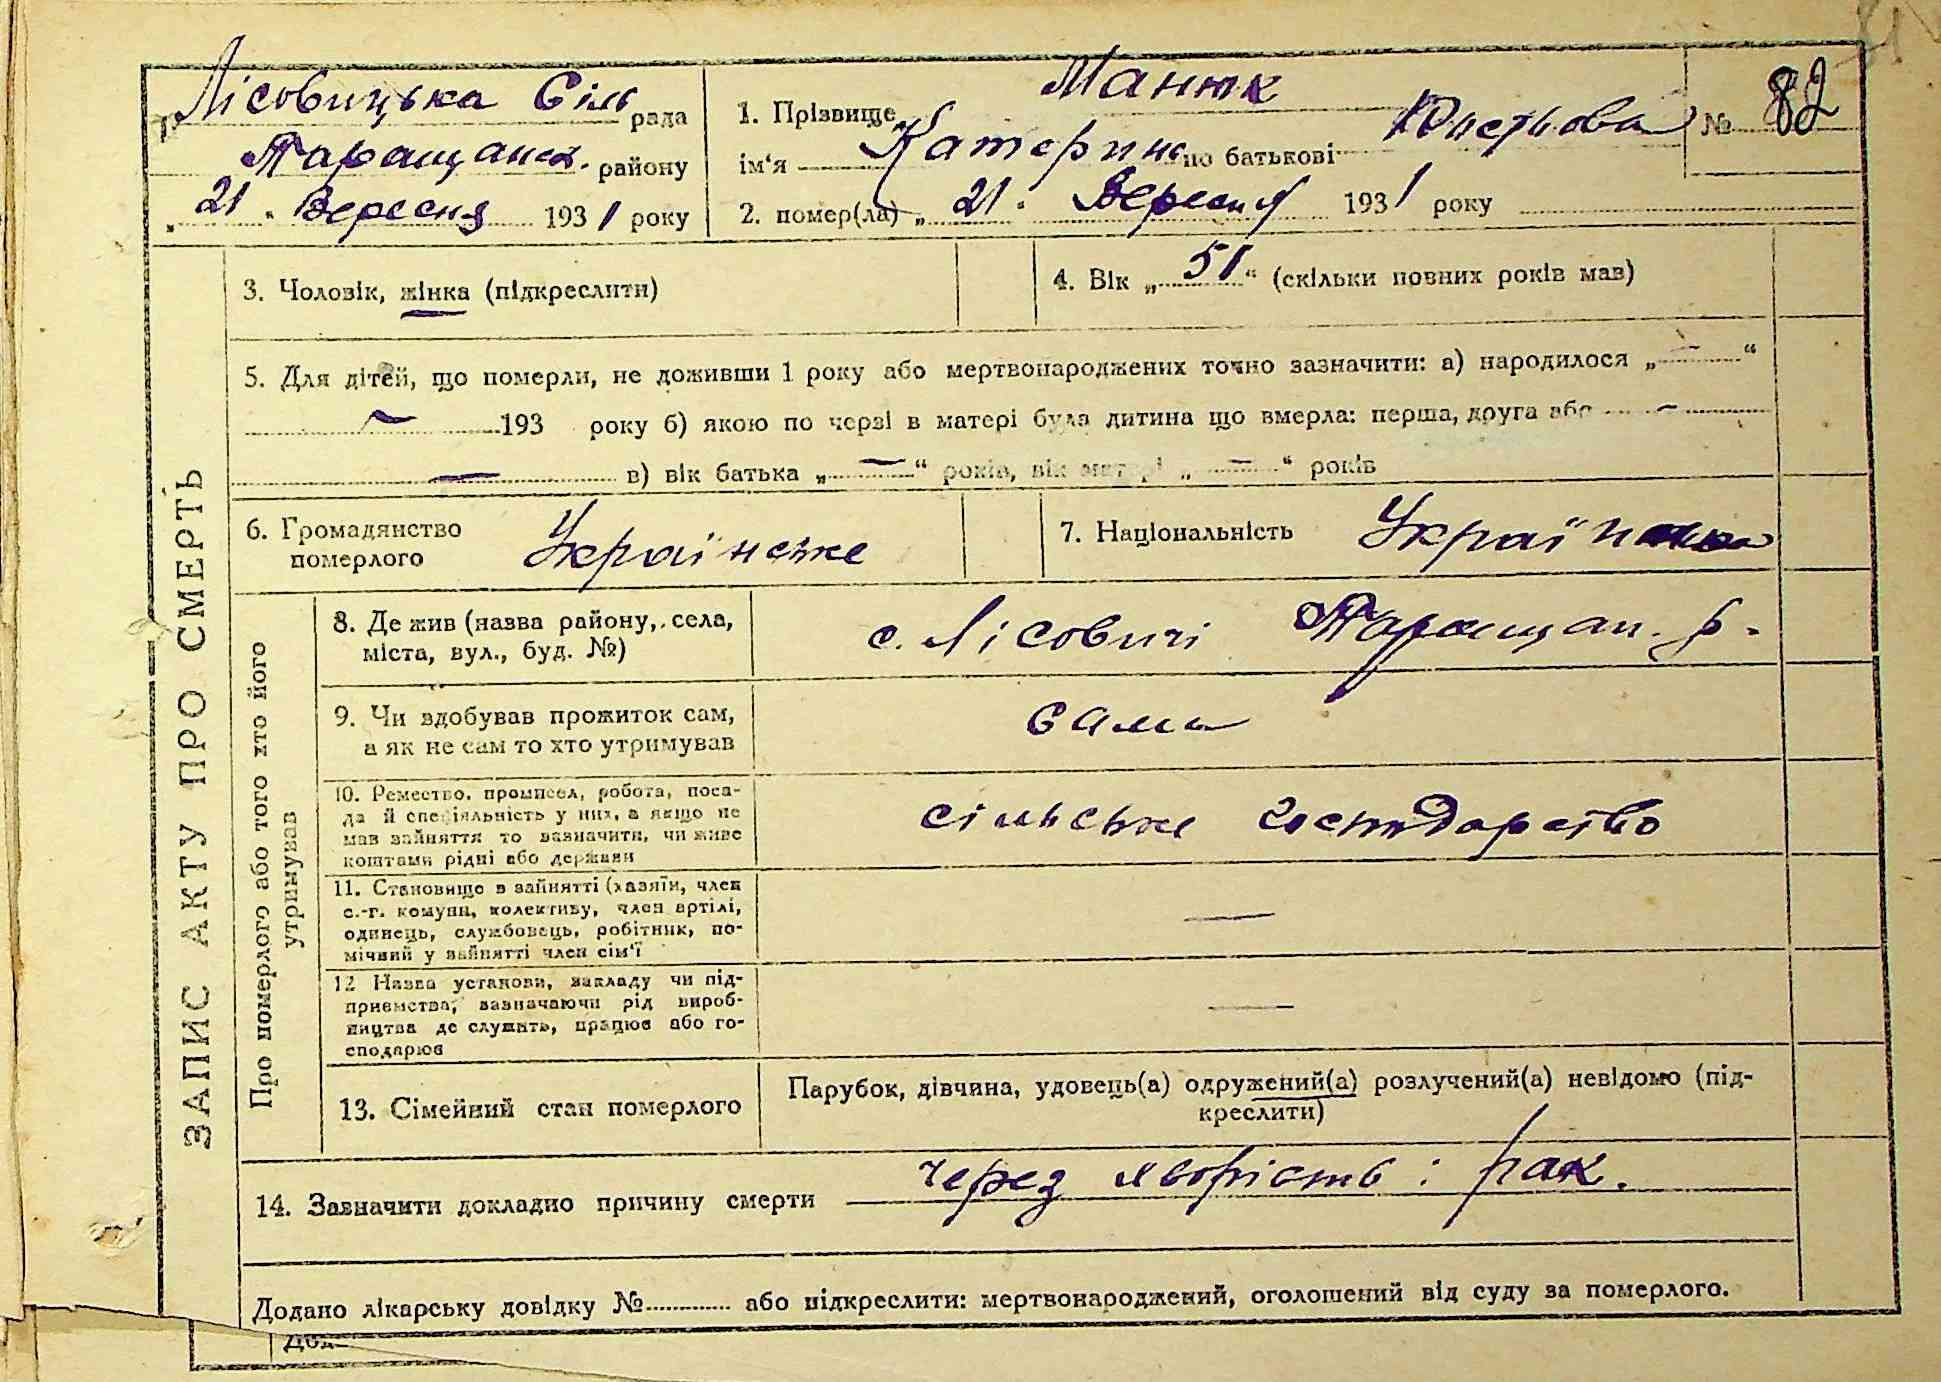 Лісовицька Сіль рада
Таращанск. району
„21“ Вересня 1931 року
1. Прізвище Мантк
ім‘я Катерина по батькові
№ 82
2. помер(ла) „21“ Вересня 1931 року
ЗАПИС АКТУ ПРО СМЕРТЬ
3. Чоловік, жінка (підкреслити)
4. Вік „51“ (скільки повних років мав)
5. Для дітей, що померли, не доживши 1 року або мертвонароджених точно зазначити: а) народилося „—“
— 193 року б) якою по черзі в матері була дитина що вмерла: перша, друга або —
— в) вік батька „—“ років, вік матері „—“ років
6. Громадянство
померлого
Українське
7. Національність Українка
Про померлого або того хто його
утринував
8. Де жив (назва району, села,
міста, вул., буд. №)
с. Лісовичі Таращан. р-
9. Чи вдобував прожиток сам,
а як не сам то хто утримував
сама
10. Ремество, промисел, робота, поса-
да й спеціяльність у них, а якщо не
мав зайняття то зазначити, чи живе
коштами рідні або держави
сільське господарство
11. Становище в зайнятті (хазяїн, член
с.-г. комуни, колективу, член артілі,
одинець, службовець, робітник, по-
мічний у зайнятті член сім‘ї
—
12 Назва установи, закладу чи під-
приємства, зазначаючи рід вироб-
ництва де служить, працює або го-
сподарює
—
13. Сімейний стан померлого
Парубок, дівчина, удовець(а) одружений(а) розлучений(а) невідомо (під-
креслити)
14. Зазначити докладно причину смерти
через хворість : рак.
Додано лікарську довідку № або підкреслити: мертвонароджений, оголошений від суду за померлого.